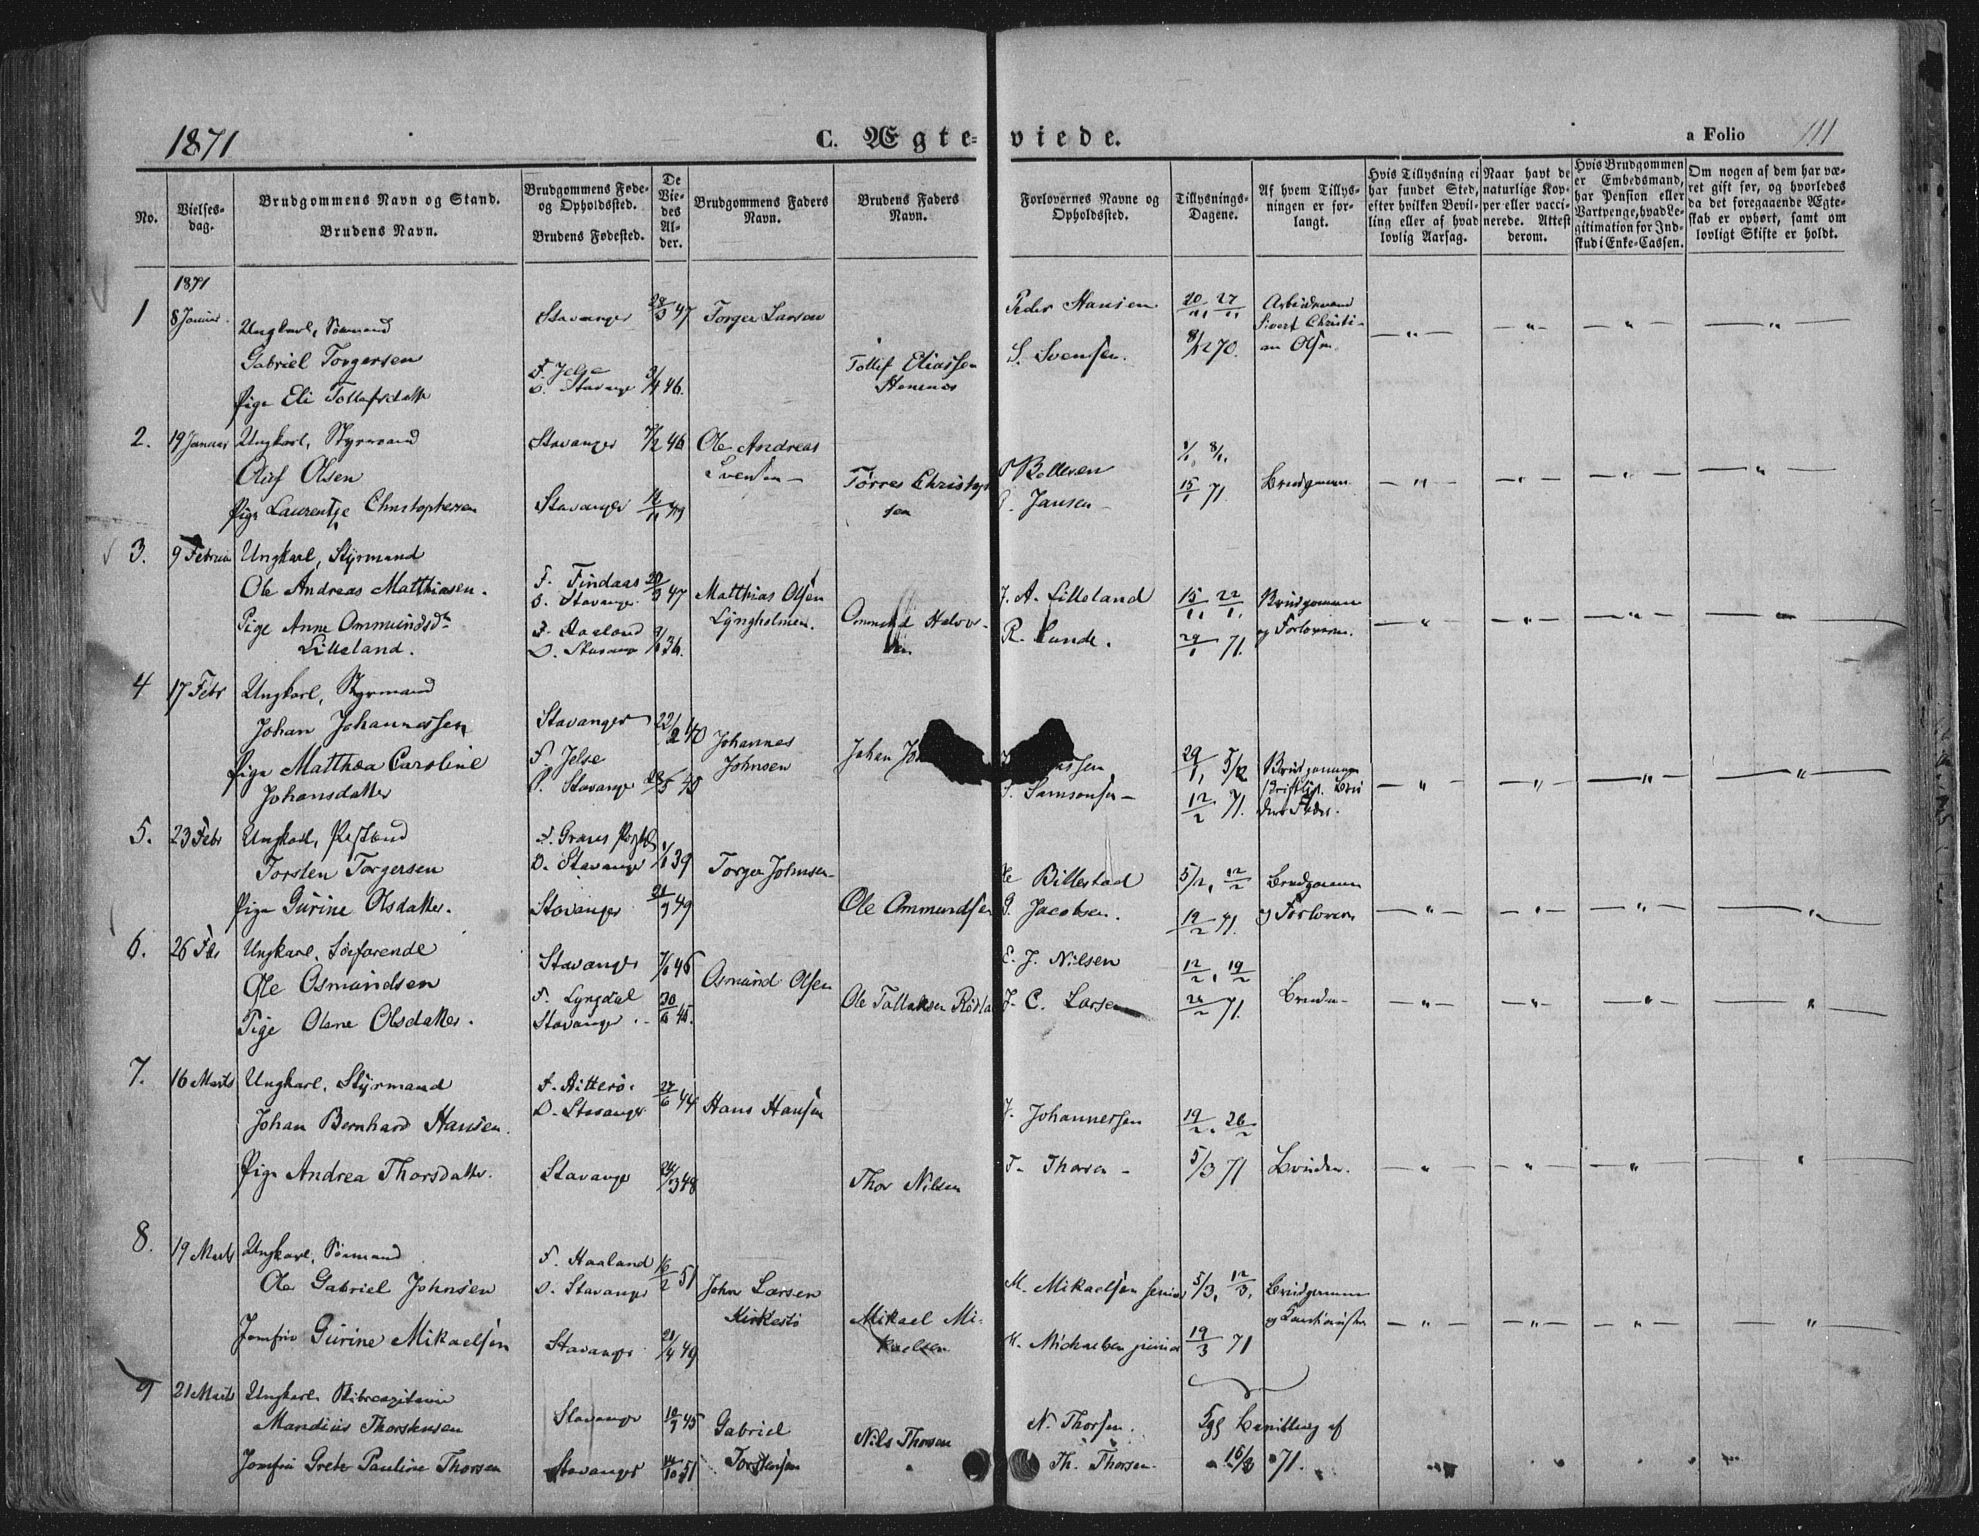 1871
C. Ægteviede.
a Folio 111
No.
Vielsesdag.
Brudgommens Navn og Stand.
Brudens Navn.
Brudgommens Føde- og Opholdssted.
Brudens Fødested.
De Viedes Alder.
Brudgommens Faders Navn.
Brudens Faders Navn.
Forlovernes Navne og Opholdssted.
Tillysnings-Dagene.
Af hvem Tillysningen er forlangt.
Hvis Tillysning ei har fundet Sted, efter hvilken Bevilling eller af hvad lovlig Aarsag.
Naar havt de naturlige Kopper eller vaccinerede. Attest derom.
Hvis Brudgommen er Embedsmand, har Pension eller Vartpenge, hvad Legitimation for Indskud i Enke-Cassen.
Om nogen af dem har været gift før, og hvorledes da det foregaaende Ægteskab er ophørt, samt om lovligt Skifte er holdt.
1871
1 8 Januar Ungkarl, Sømand Stavanger 28/3 47 Torger Larsen Peder Hansen 20/11, 27/11 Arbeidsmand
Gabriel Torgersen S. Svensen 8/12 70. Sivert Christian Olsen
Pige Eli Tollefsdatter F. Jelse O. Stavanger 3/4 46. Tollef Eliassen
2. 19 Januar Ungkarl, Styrmand Stavanger 7/2 46 Ole Andreas Svensen 1/1, 8/1,
Oluf Olsen 15/1 71. Brudgommen
Pige Laurentje Christophersen Stavanger Torres Christophersen Jansen
3. 9 Februar Ungkarl, Styrmand
Ole Andreas Matthiasen. F. Findaas O. Stavanger 20/3 47 Matthias Olsen Lyngholmen. J. A. Lilleland 15/1, 22/1, Brudgommen
Pige Anne Ommundsdtr Lilleland. F. Haaland O. Stavanger 36. Ommund Halvorsen R. Lunde. 29/1 71. og Forloveren.
4 17 Febr Ungkarl, Styrmand
Johan Johannessen Stavanger 22/2 40 Johannes Johnsen 29/1, 5/2 Brudgommen
Pige Matthea Caroline Johansdatter F. Jelse O. Stavanger 28/5 45 Johan S. Samsonsen 12/2 71.
5. 23 Febr Ungkarl,
Torsten Torgersen O. Stavanger 39 Torger Johnsen Billestad 5/2, 12/2 Brudgommen
Pige Gurine Olsdatter. Stavanger 21/9 49 Ole Ommundsen G. Jacobsen. 19/2 71. og Forloveren
6. 26 Febr Ungkarl, Søfarende Stavanger 46 Osmund Olsen E. J. Nilsen 12/2, 19/2
Ole Osmundsen
Pige Olene Olsdatter. F. Lyngdal Stavanger 30/6 45. Ole Tallaksen J. C. Larsen 26/2 71. Bruden
7. 16 Marts Ungkarl, Styrmand F. Hitterø. O. Stavanger 27/6 44 Hans Hansen
Johan Bernhard Hansen. J. Johannessen 19/2, 26/2
Pige Andrea Thorsdatter. Stavanger 24/3 48 Thor Nilsen T. Thorsen 5/3 71 Bruden.
8. 19 Marts Ungkarl, Sømand F. Haaland
Ole Gabriel Johnsen O. Stavanger 16/2 51 John Larsen Kirkestø M. Mikaelsen senior 5/3, 12/3, Brudgommen
Jomfru Gurine Mikaelsen Stavanger 21/4 49 Mikael Mikaelsen M. Mickaelsen junior 19/3 71
9 21 Marts Ungkarl
Mandius Thorstensen Stavanger 10/9 45 Gabriel Torstensen N. Thorsen. Bevilling af
Jomfru Grete Pauline Thorsen Stavanger 51 Nils Thorsen Th. Thorsen. 15/3 71.